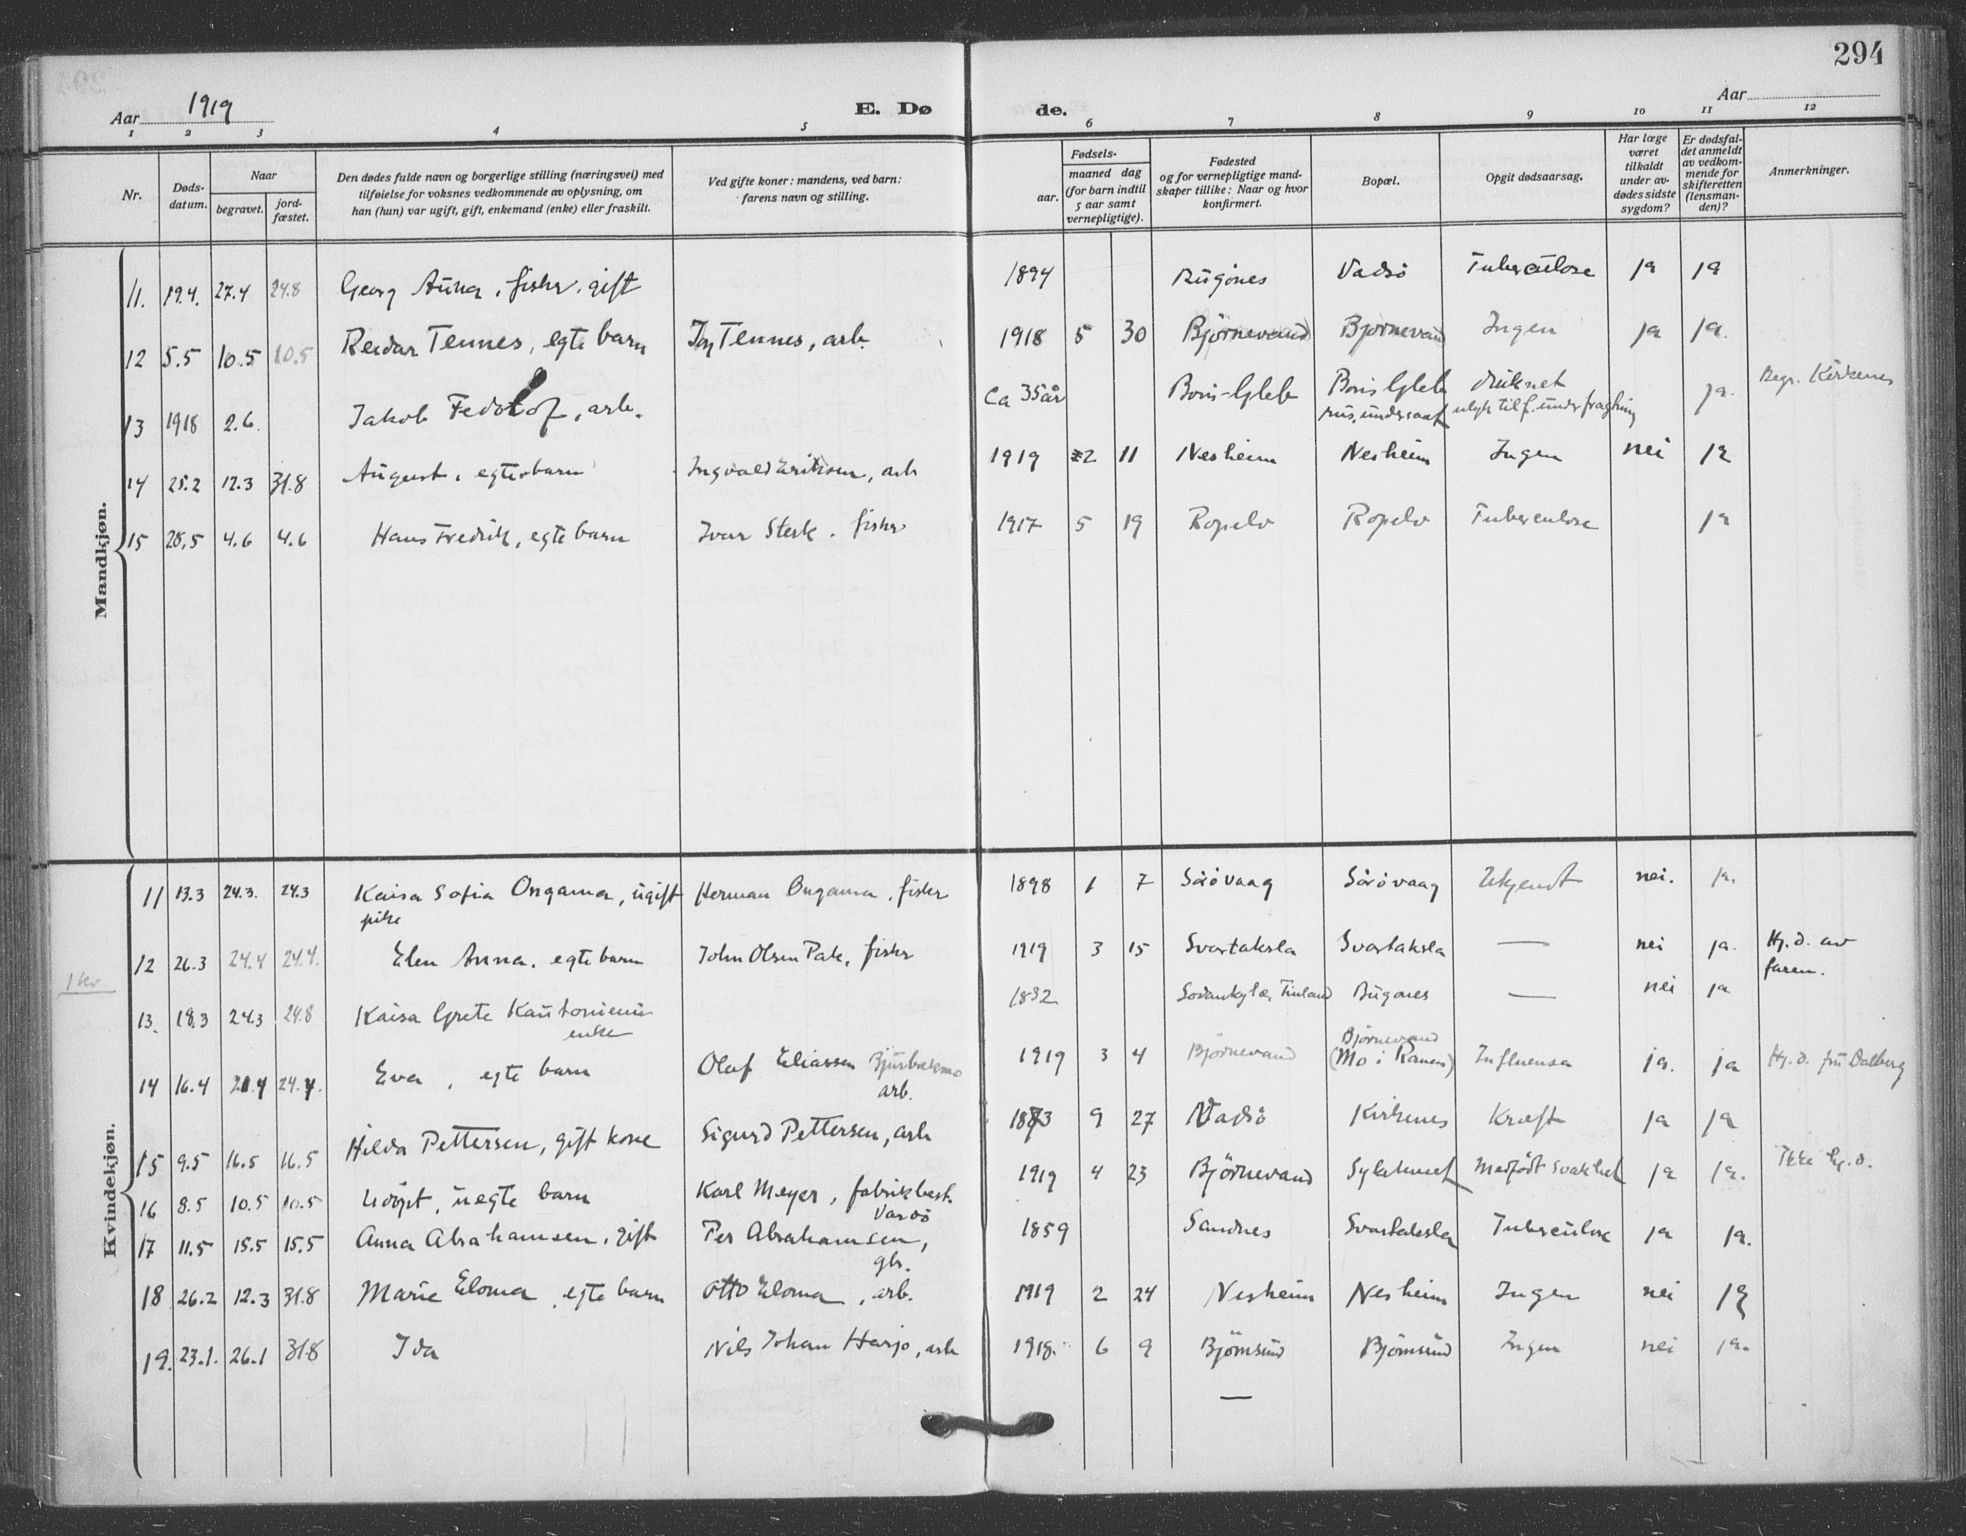 294
Aar 1919
E. Dø
de.
Aar
1 2 3 4 5 6 7 8 9 10 11 12
Nr.
Døds-
datum.
Naar
begravet.
jord-
fæstet.
Den dødes fulde navn og borgerlige stilling (næringsvei) med
tilføielse for voksnes vedkommende av oplysning, om
han (hun) var ugift, gift, enkemand (enke) eller fraskilt.
Ved gifte koner: mandens, ved barn:
farens navn og stilling.
Fødsels-
aar.
maaned dag
(for barn indtil
5 aar samt
vernepligtige).
Fødested
og for vernepligtige mand-
skaper tillike: Naar og hvor
konfirmert.
Bopæl.
Opgit dødsaarsag.
Har læge
været
tilkaldt
under av-
dødes sidste
sygdom?
Er dødsfal-
det anmeldt
av vedkom-
mende for
skifteretten
(lensman-
den)?
Anmerkninger.
Mandkjøn.
11. 19.4. 27.4 24.8 Georg Auna, fisker, gift 1894 Bugønes Vadsø Tuberculose ja ja
12 5.5 10.5 10.5 Reidar Tennes, egte barn Tennes, arb. 1918 5 30 Bjørnevand Bjørnevand Ingen ja ja.
13 1918 2.6. Jakob Fedotof, arb. ca 35 år Boris-Gleb Boris Gleb druknet ja. Begr. Kirkenes
rus. undersaat
14 25.2 12.3 31.8 August, egte barn Ingvald Eriksen, arb 1919 2 11 Nesheim Nesheim Ingen nei ja
15 28.5 4.6 4.6 Hans Fredrik, egte barn Ivar Sterk, fisker 1917 5 19 Ropelv Ropelv Tuberculose ja
Kvindekjøn.
11 13.3 24.3. 24.3 Kaisa Sofia Ongama, ugift Herman Ongama, fisker 1898 1 7 Sörövaag Sörövaag Ukjendt nei. ja.
pike
12 26.3 24.4 24.4. Elen Anna, egte barn John Olsen Pate, fisker 1919 3 15 Svartaksla Svartaksla — nei ja. Hj. d. av
faren.
1 kv
13. 18.3 24.3 24.8 Kaisa Grete 1832 Sodankylæ, Finland Bugønes — nei ja
enke
14 16.4 21.4 24.4. Eva, egte barn Olaf Eliassen 1919 3 4 Bjørnevand Bjørnevand Influensa ja. ja Hj. d. fru Dalberg
arb.
(Mo i Ranen)
15 9.5 16.5 16.5 Hilda Pettersen, gift kone Sigurd Pettersen, arb 1873 9 27 Vadsø Kirkenes Kræft ja ja
16 8.5 10.5 10.5 Udöpt, uegte barn Karl Meyer, fabrikbest. 1919 4 23 Bjørnevand Sykehuset Medfödt svakhet ja ja. Ikke hj. d.
Vardö
17 11.5 15.5 15.5 Anna Abrahamsen, gift Per Abrahamsen, 1859 Sandnes Svartaksla Tuberculose ja ja.
gbr.
18 26.2 12.3 31.8 Marie Eloma, egte barn Otto Eloma, arb. 1919 2 24 Nesheim Nesheim Ingen nei ja
19. 23.1. 26.1 31.8 Ida Nils Johan Harjo, arb 1918. 6 9 Björnsund Björnsund Ingen nei ja.
—